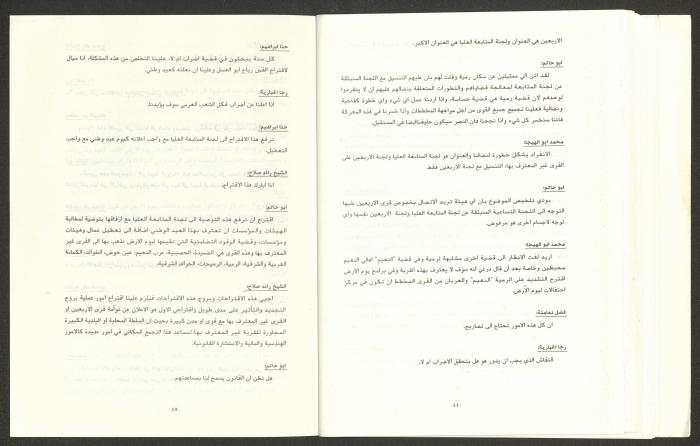 الاربعين هي العنوان ولجنة المتابعة العليا هي العنوان الاكبر.
ابو حاتم:
لقد اتى الي ممثلين عن سكان رمية وقلت لهم بان عليهم التنسيق مع اللجنة المنبثقة
عن لجنة المتابعة لمعالجة قضاياهم والتطورات المتعلقة بنضالهم عليهم ان لا ينفردوا
لوحدهم لان قضية رمية هي قضية حساسة، واذا اردنا عمل اي شيء واي خطوة كفاحية
ونضالية فعلينا تجميع جميع القوى من اجل مواجهة المخططات واذا خسرنا في هذه المعركة
فاننا سنخسر كل شيء واذا نجحنا فان النصر سيكون حليفنا ايضا في المستقبل.
محمد ابو الهيجا:
الانفراد يشكل خطورة لنضالنا والعنوان هو لجنة المتابعة العليا ولجنة الاربعين على
القرى غير المعترف بها، التنسيق مع لجنة الاربعين فقط.
ابو حاتم:
بودي تلخيص الموضوع بان اي هيئة تريد الاتصال بخصوص قرى الاربعين عليها
التوجه الى اللجنة التساعية المنبثقة عن لجنة المتابعة العليا ولجنة الاربعين نفسها واي
توجه لاجسام اخرى هو مرفوض.
محمد ابو الهيجا:
اريد لفت الانظار الى قضية اخرى مشابهة لرمية وهي قضية "النعيم" اهالي النعيم
محبطين وخاصة بعد ان قال درعي انه سوف لا يعترف بهذه القرية وفي برامج يوم الارض
اقترح التشديد على الرمية "النعيم" والعريان من القرى المخطط ان تكون في مركز
احتفالات ليوم الأرض.
فضل نعامنة:
ان كل هذه الامور تحتاج الى تصاريح.
رجا اغبارية:
النقاش الذي يجب ان يدور هو هل يتحقق الاضراب ام لا.
-٤٤-
حنا ابراهيم:
كل سنة يبحثون في قضية اضراب ام لا، علينا التخلص من هذه المشكلة، انا ميال
لاقتراح القس رياح ابو العسل وعلينا ان نعلنه كعيد وطني.
رجا اغبارية:
اذا اعلنا عن اضراب، فكل الشعب العربي سوف يؤيدنا.
حنا ابراهيم:
نرفع هذا الاقتراح الى لجنة المتابعة العليا مع واجب اعلانه كيوم عيد وطني مع واجب
التعطيل.
الشيخ رائد صلاح:
انا ابارك هذا الاقتراح.
ابو حاتم:
اقترح ان نرفع هذه التوصية الى لجنة المتابعة العليا مع ارفاقها بتوصية لمطالبة
الهيئات والمؤسسات ان تعترف بهذا العيد الوطني اضافة الى تعطيل عمال، وهيئات
ومؤسسات، وقضية الوفود التضامنية التي نقيمها ليوم الارض نذهب بها الى القرى غير
المعترف بها وهذه القرى هي الضميدة، الحسينية، عرب النعيم، عين حوض، الخوالد، الكمانة
الغربية والشرقية، الرمية، الرميحات، الخوالد الشرقية.
الشيخ رائد صلاح:
احيي هذه الاقتراحات وبروح هذه الاقتراحات فيلزم علينا اقتراح امور عملية بروح
التجديد والتأثير على مدى طويل واقتراحي الاول هو الاعلان عن توأمة قرى الاربعين او
القرى غير المعترف بها مع قرى او مدن كبيرة بحيث ان السلطة المحلية او البلدية الكبيرة
المجاورة للقرية غير المعترف بها لتساعد هذا التجمع السكاني في امور عديدة كالامور
الهندسية والمالية والاستشارة القانونية.
ابو حاتم:
هل تظن ان القانون يسمح لنا بمساعدتهم.
-٤٥-